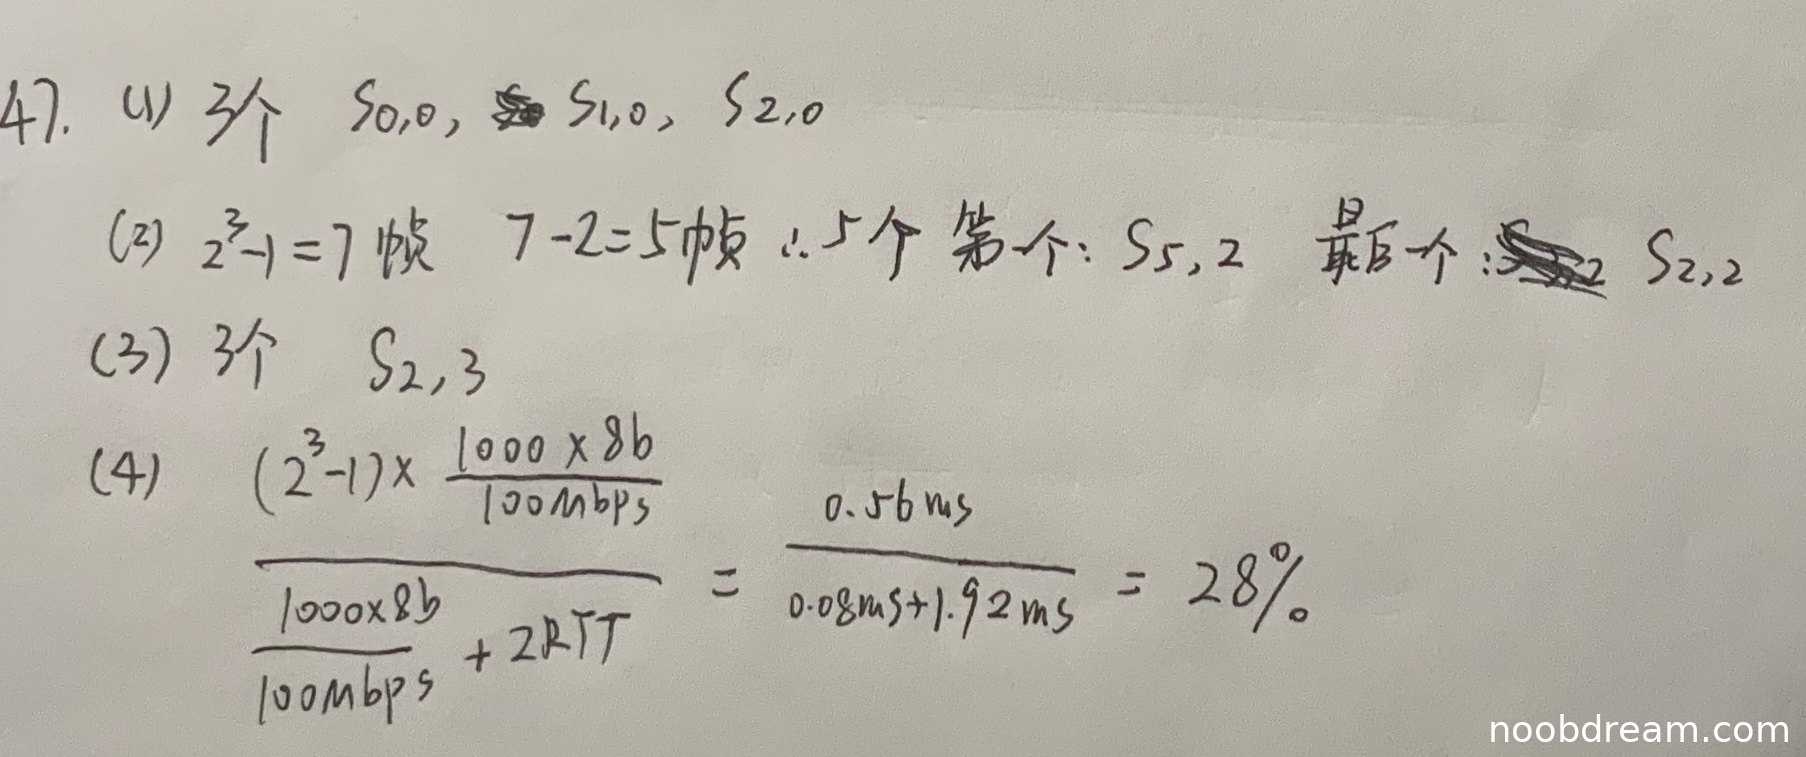 47. (1) 3个 S0,0, S1,0, S2,0
(2) 2³-1=7帧 7-2=5帧 ∴5个 第一个: S5,2 最后一个: S2,2
(3) 3个 S2,3
(4) (2³-1)× 1000×8b / 100Mbps
1000×8b / 100Mbps + 2RTT
= 0.56ms / 0.08ms+1.92ms = 28%
noobdream.com